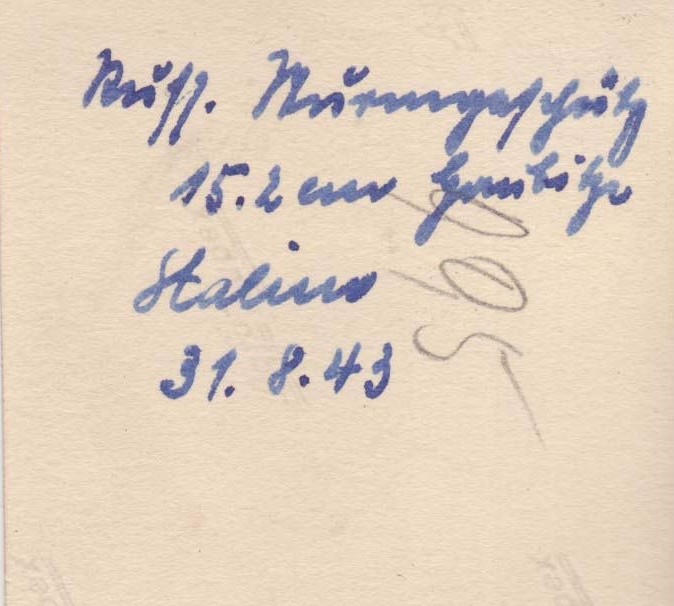 Russ. Sturmgeschütz
15.2 cm Haubitze
Stalino
31. 8. 43